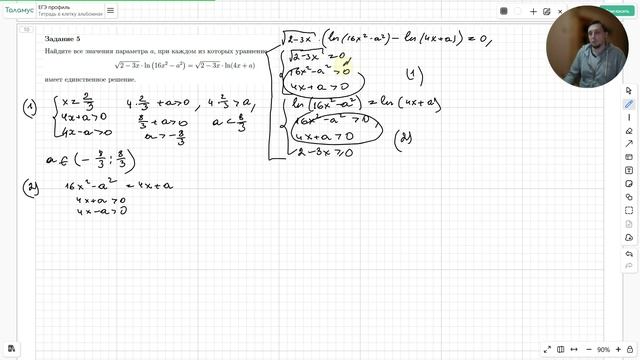 Таламус
ЕГЭ профиль
Тетрадь в клетку альбомная
10
Задание 5
Найдите все значения параметра a, при каждом из которых уравнение
√(2−3x) · ln (16x² − a²) = √(2−3x) · ln(4x + a)
имеет единственное решение.
√(2−3x) · (ln(16x²−a²) − ln(4x+a)) = 0,
√(2−3x) = 0
16x²−a² > 0
4x+a > 0
(1)
ln(16x²−a²) = ln(4x+a)
16x²−a² > 0,
4x+a > 0
2−3x ≥ 0
(2)
(1) x = 2/3
4x+a>0
4x−a>0
4·2/3 + a>0 , 4·2/3 > a,
8/3 + a>0 a < 8/3
a > −8/3
a ∈ (−8/3; 8/3)
(2) 16x²−a² = 4x+a
4x+a >0
4x−a >0
90%